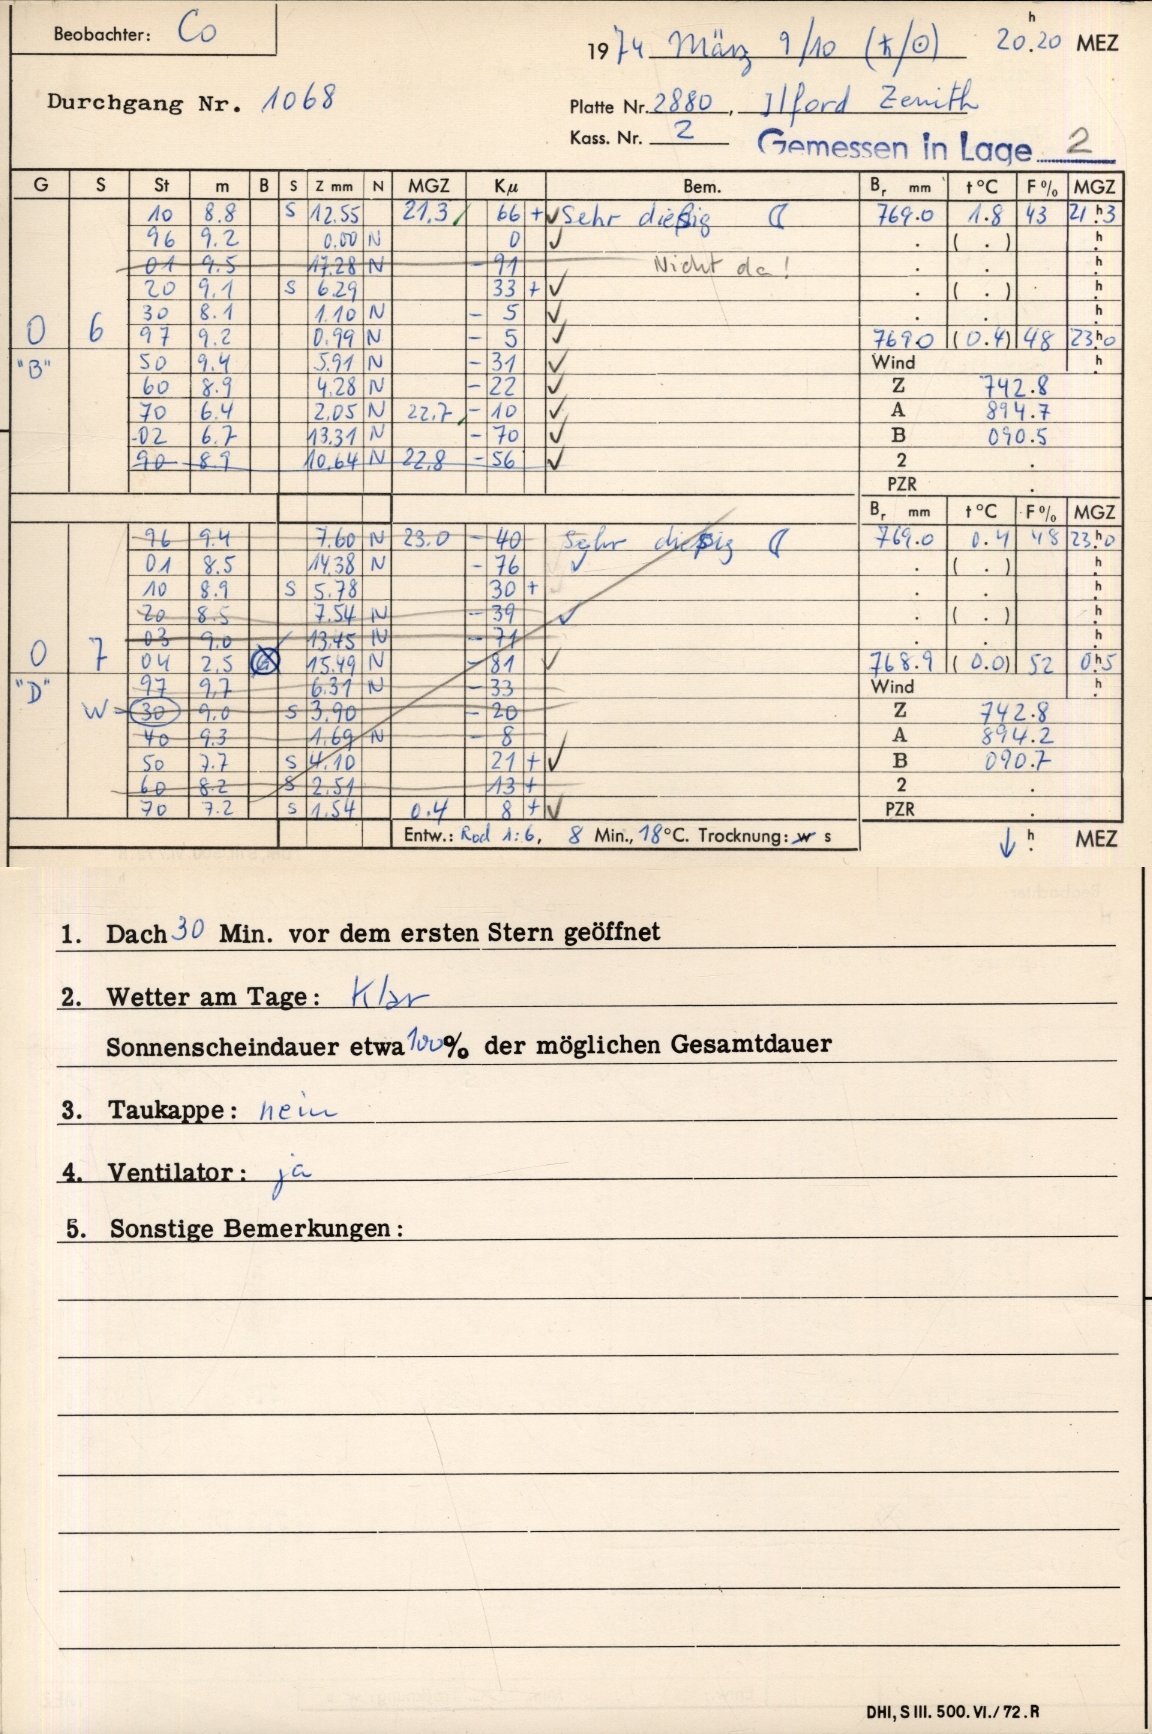 Beobachter: Co
1974 März 9/10 (♄/☉) 20.20 h MEZ
Durchgang Nr. 1068
Platte Nr. 2880, Ilford Zenith
Kass. Nr. 2
Gemessen in Lage 2
G S St m B S Z mm N MGZ Kμ Bem. Br mm t°C F% MGZ
10 8.8 S 12.55 21,3 66 + ✓ Sehr dießig ☾ 769.0 1.8 43 21h3
96 9.2 0.00 N 0 ✓ . ( . ) h
01 9.5 17.28 N - 91 Nicht da! . . h
20 9.1 S 6.29 33 + ✓ . ( . ) h
30 8.1 1.10 N - 5 ✓ . . h
0 6 97 9.2 0.99 N - 5 ✓ 769.0 (0.4) 48 23h0
"B" 50 9.4 5.91 N - 31 ✓ Wind h
60 8.9 4.28 N - 22 ✓ Z 742.8
70 6.4 2.05 N 22,7 - 10 ✓ A 894.7
02 6.7 13.31 N - 70 ✓ B 090.5
90 8.9 10.64 N 22,8 - 56 ✓ 2 .
PZR .
Br mm t°C F% MGZ
96 9.4 7.60 N 23.0 - 40 Sehr dießig ☾ 769.0 0.4 48 23h0
01 8.5 14.38 N - 76 ✓ . ( . ) h
10 8.9 S 5.78 30 + . . h
20 8.5 7.54 N - 39 ✓ . ( . ) h
03 9.0 13.45 N - 71 . . h
0 7 04 2.5 15.49 N - 81 ✓ 768.9 (0.0) 52 0h5
"D" 97 9.7 6.31 N - 33 Wind h
W 30 9.0 S 3.90 - 20 Z 742.8
40 9.3 1.69 N - 8 A 894.2
50 7.7 S 4.10 21 + ✓ B 090.7
60 8.2 S 2.51 13 + 2 .
70 7.2 S 1.54 0.4 8 + ✓ PZR .
Entw.: Rod 1:6, 8 Min., 18°C. Trocknung: w s ↓ h MEZ
1. Dach 30 Min. vor dem ersten Stern geöffnet
2. Wetter am Tage: Klar
Sonnenscheindauer etwa 100% der möglichen Gesamtdauer
3. Taukappe: nein
4. Ventilator: ja
5. Sonstige Bemerkungen:
DHI, S III. 500. VI./72. R